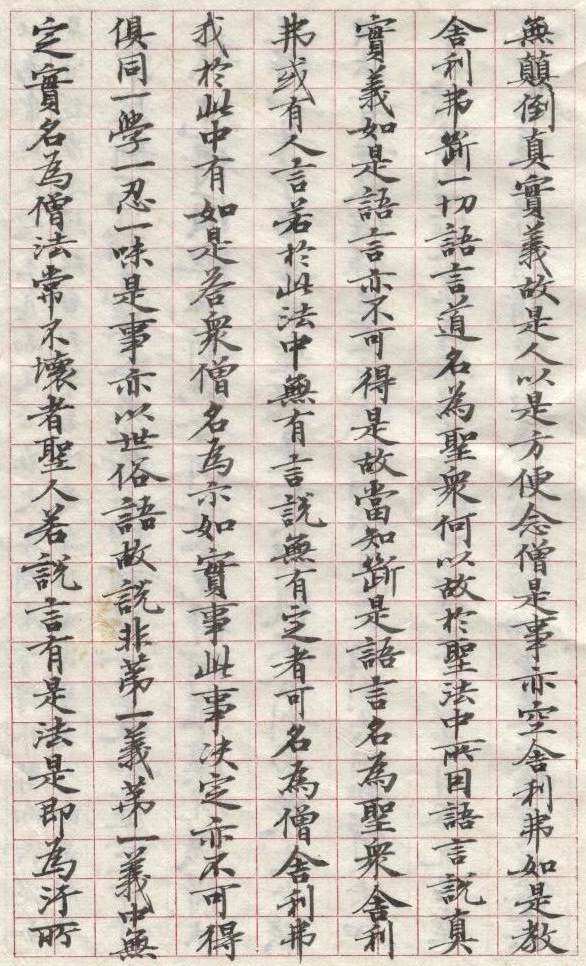 無顛倒真實義故是人以是方便念僧是事亦空舍利弗如是教
舍利弗斷一切語言道名為聖衆何以故於聖法中所因語言說真
實義如是語言亦不可得是故當知斷是語言名為聖衆舍利
弗或有人言若於此法中無有言説無有定者可名為僧舍利弗
我於此中有如是答衆僧名為示如實事此事决定亦不可得
俱同一學一忍一味是事亦以世俗語故說非苐一義苐一義中無
定實名為僧法常不壞者聖人若説言有是法是即為汙所